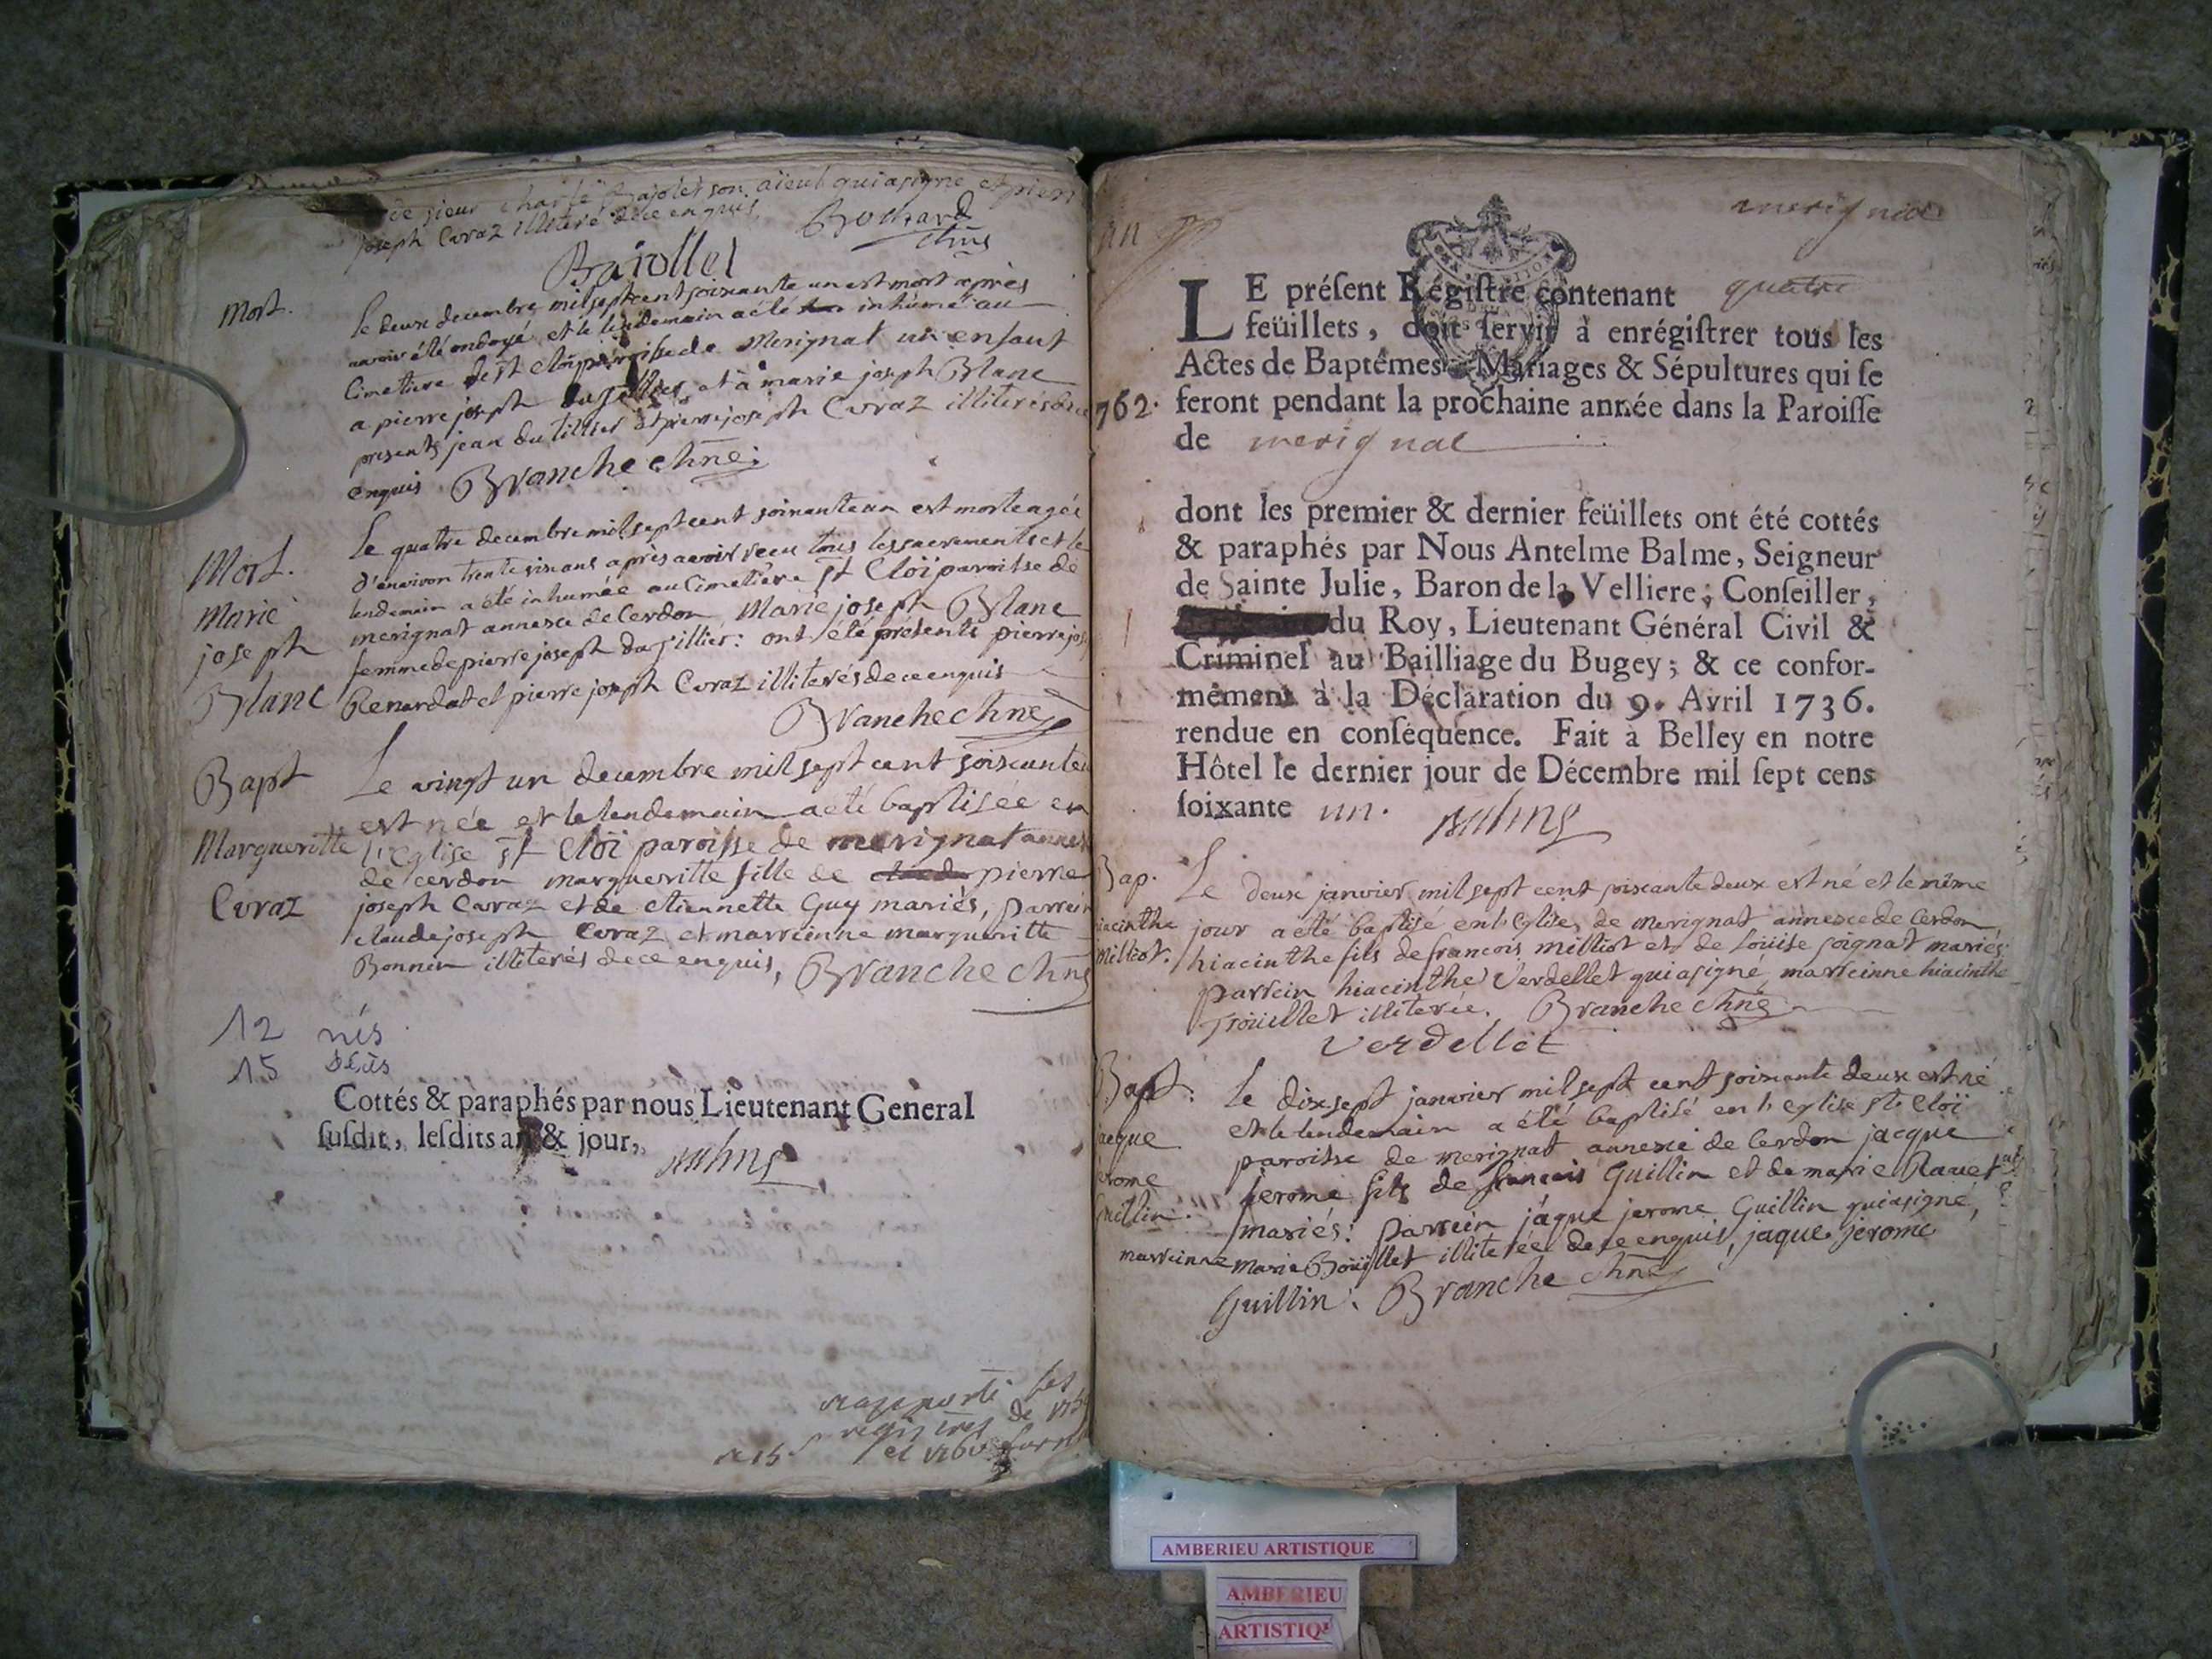 ce sieur charle Bajolet son aïeul qui a signe et pierre
joseph Curaz illiteré de ce enquis. Brohard
chne
Bajollet
Mort.
Le deux decembre mil sept cent soixante un est mort après
avoir été ondoyé et le lendemain a été inhumé au
Cimetiere de st Cloi paroisse de Merignat un enfant
a pierre joseph dugillier et à marie joseph Blanc
presents jean du tillier et pierre joseph Curaz illiterés de ce
enquis Branche chne.
Mort.
Marie
joseph
Blanc
Le quatre decembre mil sept cent soixante un est morte agée
d'environ trente six ans après avoir reçu tous les sacrements et le
lendemain a été inhumée au Cimetière st Cloi paroisse de
merignat annexe de Cerdon Marie joseph Blanc
femme de pierre joseph du gillier: ont été présents pierre jos
Renardat et pierre joseph Curaz illiterés de ce enquis
Branche chne
Bapt
Margueritte
Curaz
Le vingt un decembre mil sept cent soixante u
est née et le lendemain a été baptisée en
l'eglise st Cloï paroisse de merignat annex
de cerdon margueritte fille de pierre
joseph Curaz et de etiennette Guy mariés, parrein
claude joseph Curaz et marreinne marguerite
Bonnin illiterés de ce enquis, Branche chne
12 nés
15 Décés
Cottés & paraphés par nous Lieutenant General
ſuſdit, leſdits an & jour,
rapporté les
registres de
et
merignat
LE préſent Régiſtre contenant quatre
feüillets, doit ſervir à enrégiſtrer tous les
Actes de Baptêmes, Mariages & Sépultures qui ſe
762. feront pendant la prochaine année dans la Paroiſſe
de merignat
dont les premier & dernier feüillets ont été cottés
& paraphés par Nous Antelme Balme, Seigneur
de Sainte Julie, Baron de la Velliere; Conſeiller,
du Roy, Lieutenant Général Civil &
Criminel au Bailliage du Bugey; & ce confor-
mément à la Déclaration du 9. Avril 1736.
rendue en conſéquence. Fait à Belley en notre
Hôtel le dernier jour de Décembre mil ſept cens
ſoixante un.
Bap.
hiacinthe
Milliot.
Le deux janvier mil sept cent soixante deux est né et le même
jour a été baptisé en l'Eglise de merignat annexe de Cerdon
hiacinthe fils de francois milliot et de Loüise soignat mariés
parrein hiacinthe Verdellet qui a signé marreinne hiacinthe
Troüillet illiterée. Branche chne
Verdellet
Bapt:
jacque
jerome
Guillin.
Le dix sept janvier mil sept cent soixante deux est né
et le lendemain a été baptisé en l'eglise st Cloï
paroisse de merignat annexe de Cerdon jacque
jerome fils de francois Guillin et de marie Ravet
mariés: parrein jaque jerome Guillin qui a signé,
marreinne marie Boüillet illiterée de ce enquis, jaque jerome
Guillin. Branche chne
AMBERIEU ARTISTIQUE
AMBERIEU
ARTISTIQU